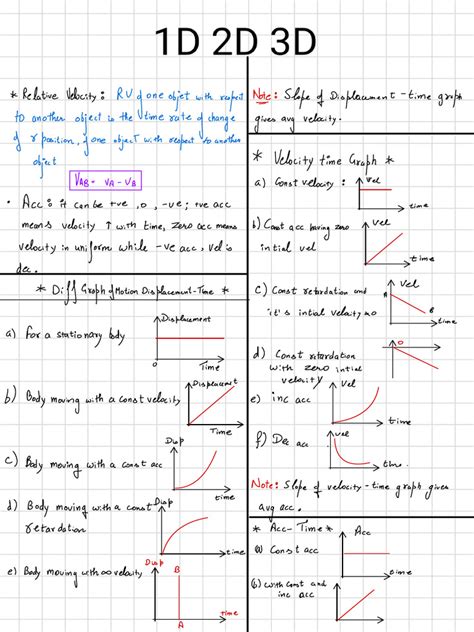 1D 2D 3D
* Relative Velocity: RV of one objet with respect
to another object is the time rate of change
of r position, of one object with respect to another
object
VAB = VA - VB
• Acc: it can be +ve, 0, -ve; +ve acc
means velocity ↑ with time, zero acc means
velocity in uniform while -ve acc, vel is
dec.
* Diff Graph of Motion Displacement-Time *
a) For a stationary body
Displacement
0
Time
b) Body moving with a const velocity
Displacement
Time
c) Body moving with a const acc
Disp
Time
d) Body moving with a const
retardation
Disp
time
e) Body moving with ∞ velocity
Disp
B
A
time
Note: Slope of Displacement-time graph
gives avg velocity.
* Velocity time Graph *
a) Const velocity:
vel
time
b) Const acc having zero
intial vel
Vel
time
c) Const retardation and
it's intial velocity no
Vel
A
B
time
d) Const retardation
with zero intial
velocity
O
e) inc acc
Vel
time
f) Dec acc
vel
time.
Note: Slope of velocity-time graph gives
avg acc.
* Acc-Time *
a) Const acc
Acc
time
(b) with Const and
inc acc
time